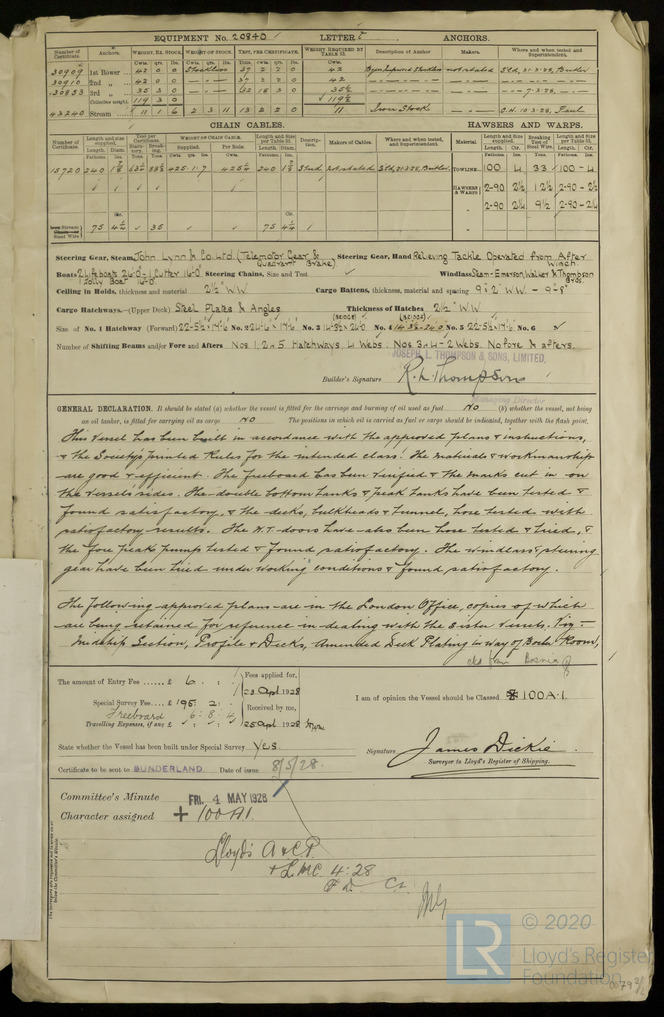 EQUIPMENT No. 20840 LETTER ANCHORS.
Number of Certificate. Anchors. WEIGHT, EX. STOCK. WEIGHT OF STOCK. TEST, PER CERTIFICATE. WEIGHT REQUIRED BY TABLE 53. Description of Anchor Makers. Where and when tested and Superintendent.
Cwts. qrs. lbs. Cwts. qrs. lbs. Tons. Cwts.
30909 1st Bower 42 0 0 Stockless 42 not stated Sld, 21.2.28, Butler
30910 2nd " 42 0 0 42
30853 3rd " 35 3 0 35½ 7.2.28
Collective weight. 119 3 0 119½
43240 Stream 11 1 6 2 3 11 13 2 2 0 11 Iron Stock C.H. 10.3.28, Paul
CHAIN CABLES. HAWSERS AND WARPS.
Number of Certificate. Length and size supplied. Test per Certificate. WEIGHT OF CHAIN CABLE. Length and Size per Table 53. Description. Makers of Cables. Where and when tested, and Superintendent. Material Length and Size supplied. Breaking Test of Steel Wire. Length and Size per Table 53.
Supplied. Per Rule.
Fathoms. Ins. Tons. Tons. Cwts. qrs. lbs. Cwts. Fathoms. Ins. Fathoms. Cir. Tons. Fathoms. Cir.
15720 240 425.1.7 240 Stud not stated Sld, 21.2.28, Butler. TOWLINE 100 4 33 100 - 4
HAWSERS & WARPS 2-90 2½ 12½ 2-90 - 2½
2-90 2½ 9½ 2-90 - 2½
75 35 75
Steel Wire
Steering Gear, Steam, John Lynn & Co. Ltd. (Telemotor Gear & Quadrant Brake) Steering Gear, Hand Relieving Tackle Operated from After Winch.
Boats 2 lifeboats 26.0 - 1 Cutter 16.0 1 Jolly Boat 16.0 Steering Chains, Size and Test ✓ Windlass Steam-Emerson, Walker & Thompson Bros.
Ceiling in Holds, thickness and material 2½" WW Cargo Battens, thickness, material and spacing 9" 2" WW - 9"-9"
Cargo Hatchways.—(Upper Deck) Steel Plates & Angles Thickness of Hatches 2½" WW
Size of No. 1 Hatchway (Forward) 22-5½ × 14-6 No. 2 24-6 × 14-6 No. 3 14-3½ × 24-0 No. 4 14-3½ × 24-0 No. 5 22-5½ × 14-6 No. 6
Number of Shifting Beams and/or Fore and Afters Nos 1, 2 & 5 Hatchways. 4 Webs. Nos 3 & 4 - 2 Webs. No fore & afters.
JOSEPH L. THOMPSON & SONS, LIMITED,
Builder's Signature R. N. Thompson
Managing Director
GENERAL DECLARATION. It should be stated (a) whether the vessel is fitted for the carriage and burning of oil used as fuel No (b) whether the vessel, not being
an oil tanker, is fitted for carrying oil as cargo No The positions in which oil is carried as fuel or cargo should be indicated, together with the flash point.
This Vessel has been built in accordance with the approved plans & instructions,
& the Society's printed Rules for the intended class. The materials & workmanship
are good & efficient. The freeboard has been verified & the marks cut in on
the vessel's sides. The double bottom tanks & peak tanks have been tested &
found satisfactory, & the decks, bulkheads & tunnel, hose tested with
satisfactory results. The W.T. doors have also been hose tested & tried, &
the fore peak pump tested & found satisfactory. The windlass & steering
gear have been tried under working conditions & found satisfactory.
The following approved plans are in the London Office, copies of which
are being retained for reference in dealing with the Sister Vessels, Viz:-
Midship Section, Profile & Decks, Amended Deck Plating in way of Boiler Room,
The amount of Entry Fee ...... £ 6 . :
Special Survey Fee.... £ 195 . 2 :
Freeboard 6 : 8 : 4
Travelling Expenses, if any £
Fees applied for,
23 Apl 1928
Received by me,
25 Apl 1928
I am of opinion the Vessel should be Classed ✠ 100A.1.
State whether the Vessel has been built under Special Survey Yes.
Signature James Dickie
Surveyor to Lloyd's Register of Shipping.
Certificate to be sent to SUNDERLAND. Date of issue 8/5/28.
Committee's Minute FRI. 4 MAY 1928
Character assigned + 100A1.
Lloyd's A & C.P.
+ L.M.C. 4:28
F.D. CL
© 2020
LR
Lloyd's Register
Foundation